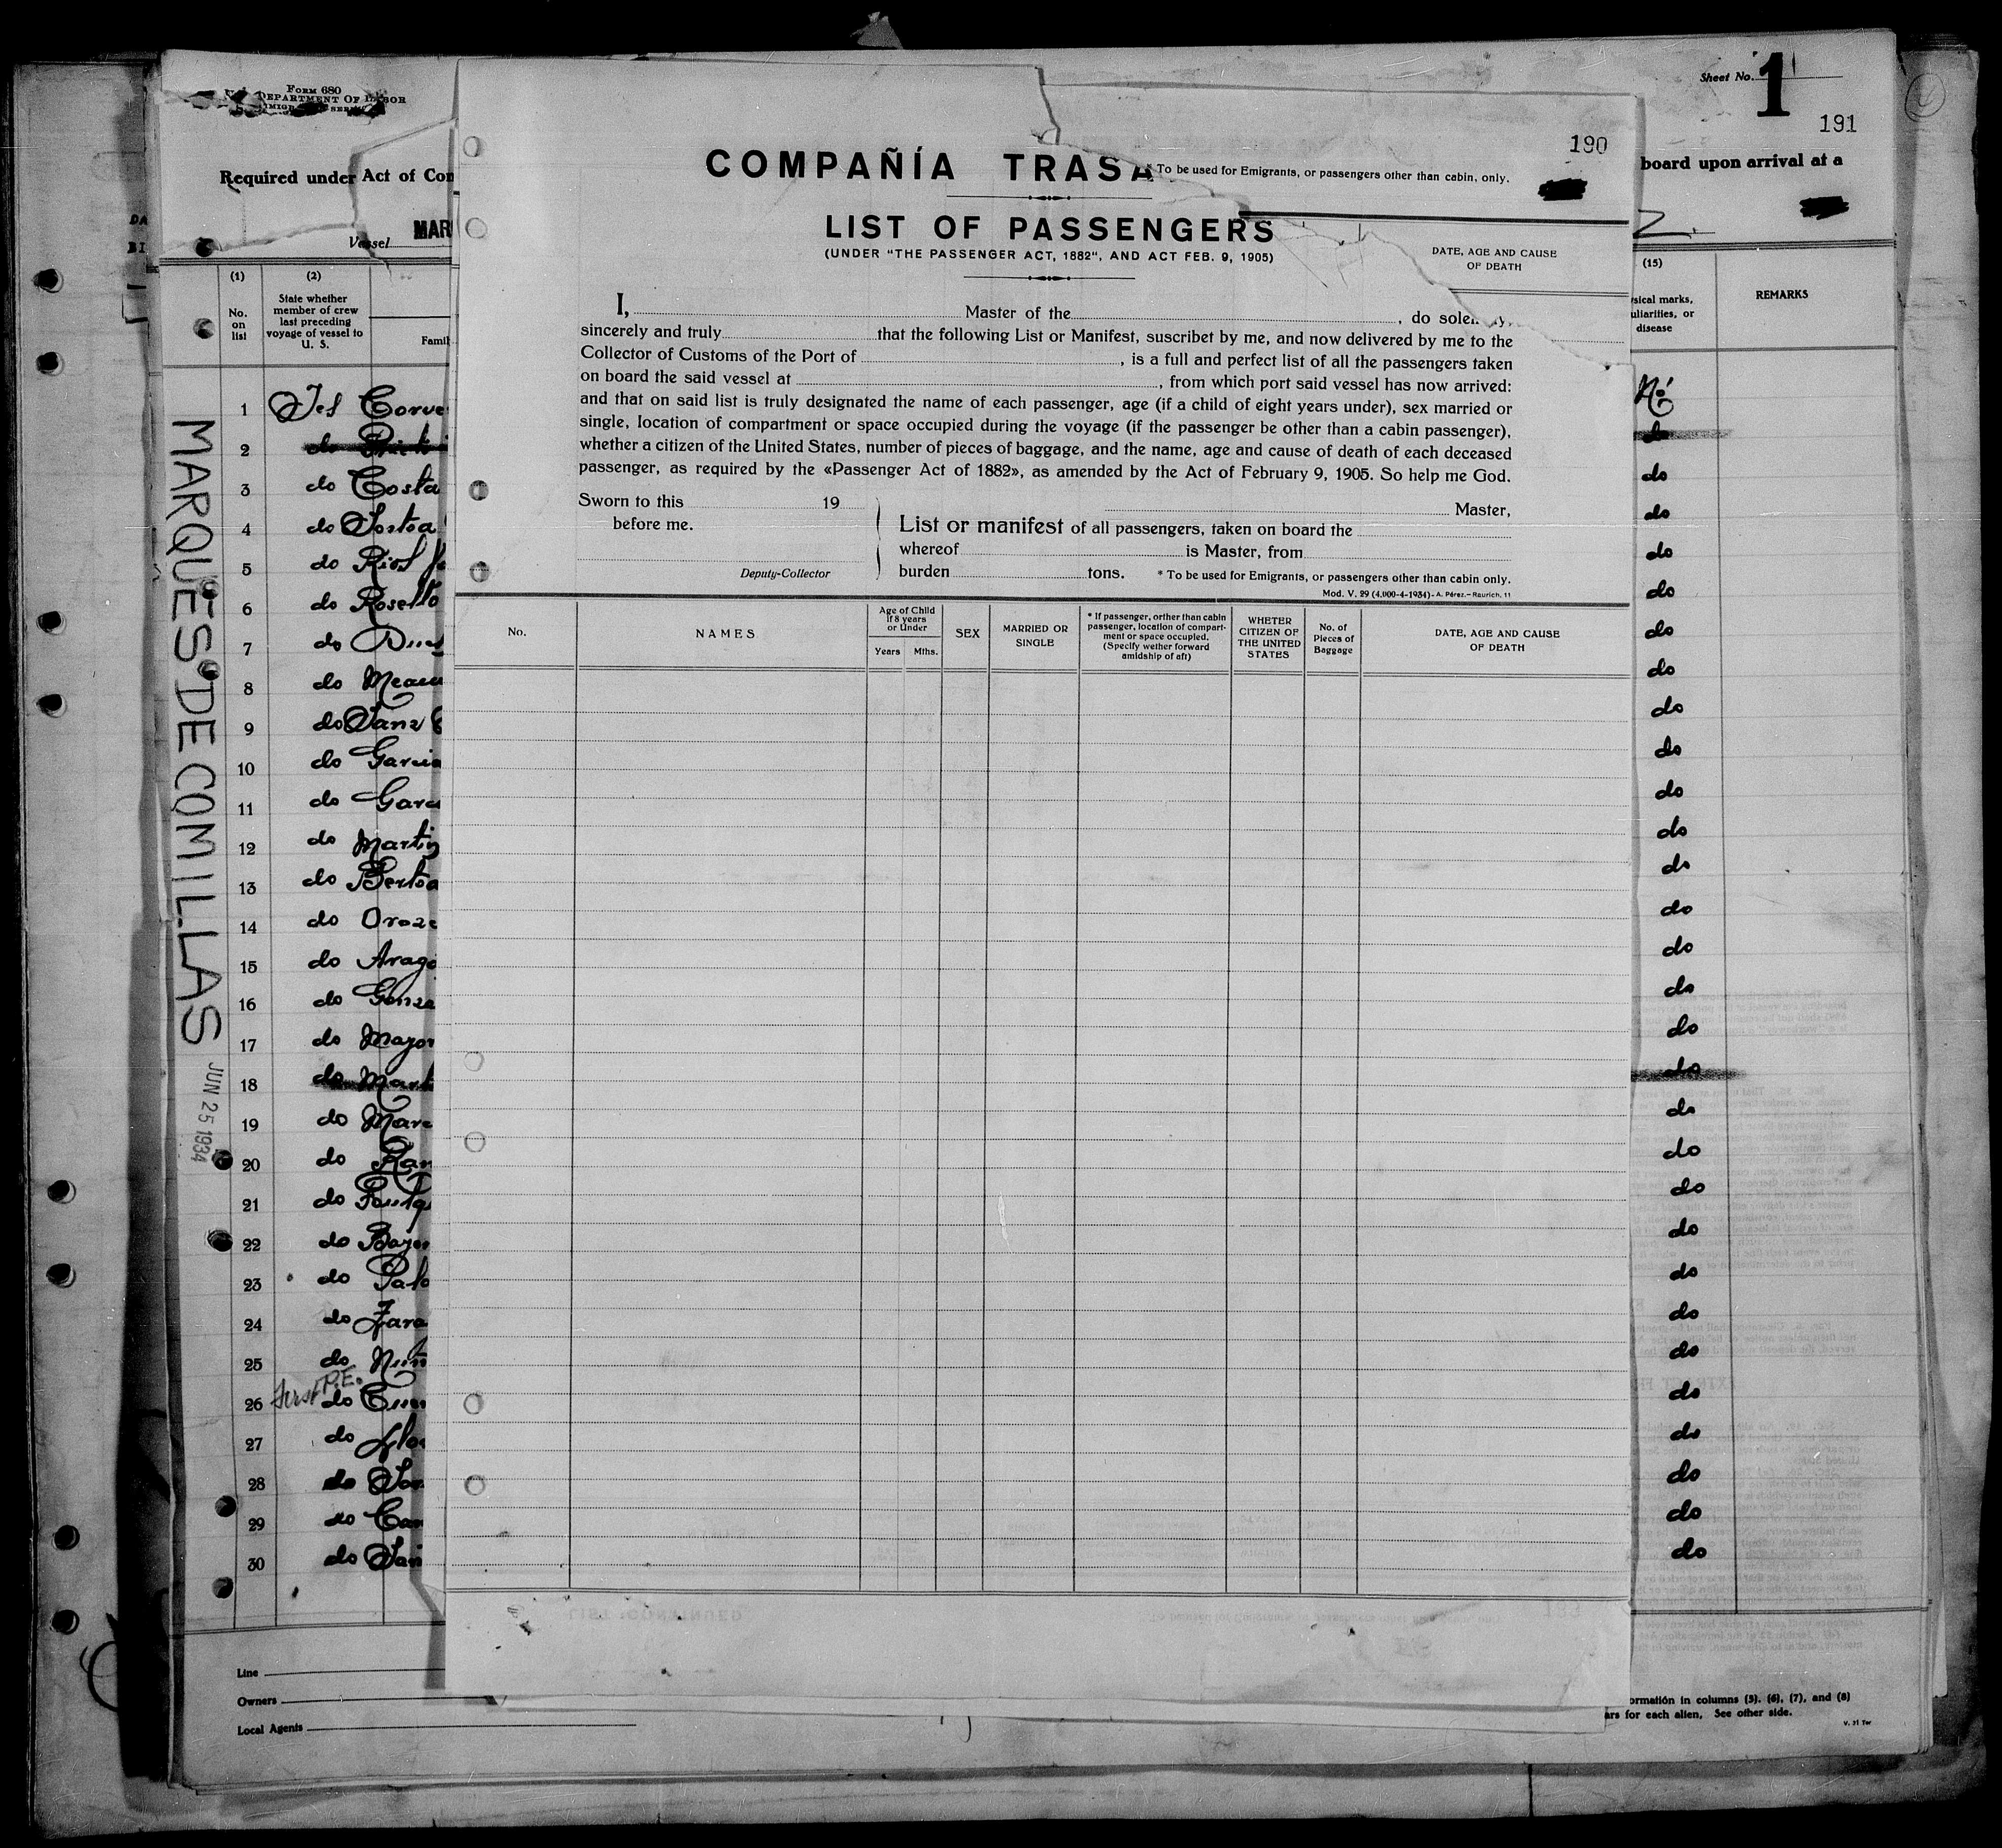 FORM 680
DEPARTMENT OF LABOR
Sheet No. 1
191
Required under Act of Con
board upon arrival at a
Vessel MAR
190
COMPAÑÍA TRASA
* To be used for Emigrants, or passengers other than cabin, only.
LIST OF PASSENGERS
(UNDER "THE PASSENGER ACT, 1882", AND ACT FEB. 9, 1905)
DATE, AGE AND CAUSE
OF DEATH
I, Master of the , do solem
sincerely and truly that the following List or Manifest, suscribet by me, and now delivered by me to the
Collector of Customs of the Port of , is a full and perfect list of all the passengers taken
on board the said vessel at , from which port said vessel has now arrived:
and that on said list is truly designated the name of each passenger, age (if a child of eight years under), sex married or
single, location of compartment or space occupied during the voyage (if the passenger be other than a cabin passenger),
whether a citizen of the United States, number of pieces of baggage, and the name, age and cause of death of each deceased
passenger, as required by the «Passenger Act of 1882», as amended by the Act of February 9, 1905. So help me God.
Sworn to this 19
before me.
Deputy-Collector
Master,
List or manifest of all passengers, taken on board the
whereof is Master, from
burden tons. * To be used for Emigrants, or passengers other than cabin only.
Mod. V. 29 (4.000-4-1934) - A. Pérez.-Raurich, 11
No.
NAMES
Age of Child
if 8 years
or Under
Years Mths.
SEX
MARRIED OR
SINGLE
* If passenger, orther than cabin
passenger, location of compart-
ment or space occupied.
(Specify wether forward
amidship of aft)
WHETER
CITIZEN OF
THE UNITED
STATES
No. of
Pieces of
Baggage
DATE, AGE AND CAUSE
OF DEATH
(1)
No.
on
list
(2)
State whether
member of crew
last preceding
voyage of vessel to
U. S.
Famil
(15)
sical marks,
uliarities, or
disease
REMARKS
MARQUES DE COMILLAS
JUN 25 1934
1 Yes Corve No
2 do do
3 do Costa do
4 do do
5 do Rios do
6 do Rosello do
7 do do
8 do do
9 do Sanz do
10 do Garcia do
11 do Garc do
12 do Martin do
13 do do
14 do Oroz do
15 do Arago do
16 do Gonza do
17 do Mayor do
18 do Mart do
19 do Marc do
20 do Ram do
21 do do
22 do do
23 do do
24 do Zara do
25 do do
First P.E.
26 do do
27 do do
28 do do
29 do do
30 do do
Line
Owners
Local Agents
ormatión in columns (5), (6), (7), and (8)
ars for each alien. See other side.
V. 31 Ter